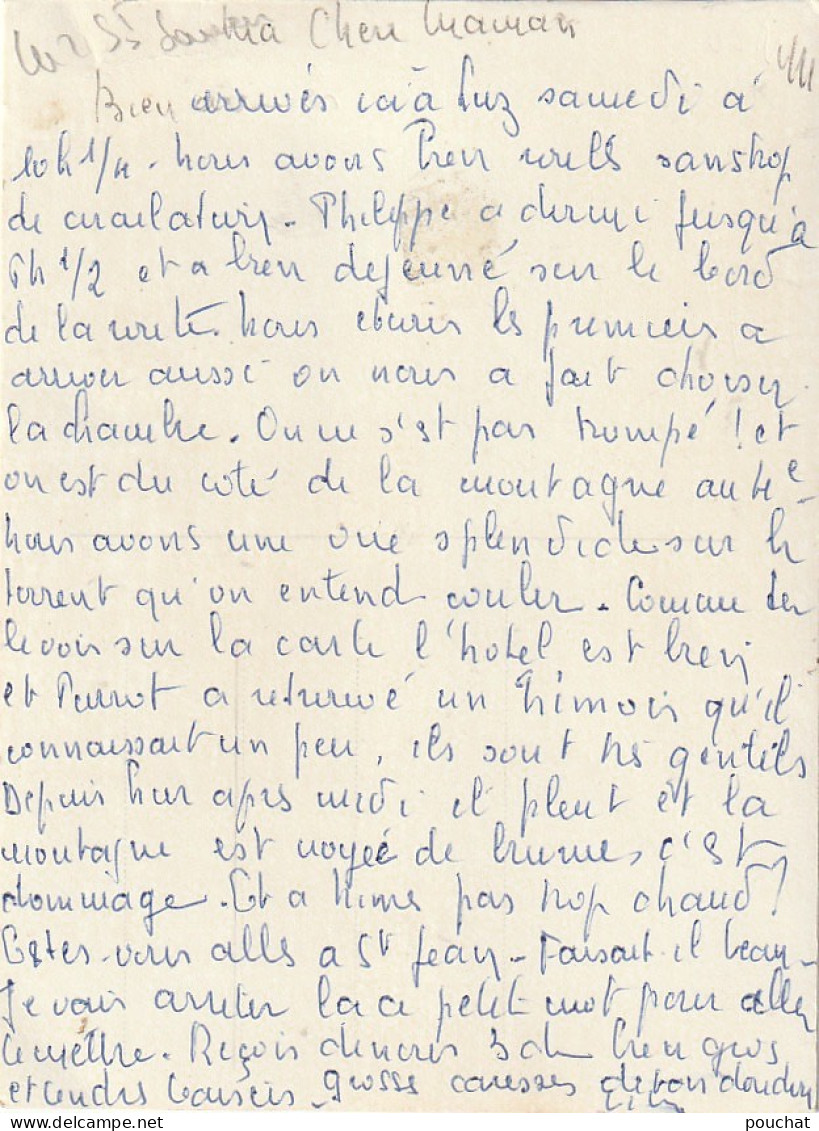 Chere Maman
Bien arrivés ici à Luz samedi à
10h 1/4. Nous avons bien roulé sans trop
de circulation. Philippe a dormi jusqu'à
7h 1/2 et a bien dejeunné sur le bord
de la route. Nous etions les premiers a
arriver aussi on nous a fait choisir
la chambre. On ne s'est pas trompé ! et
on est du coté de la montagne
Nous avons une vue splendide sur le
torrent qu'on entend couler. Comme tu
le vois sur la carte l'hotel est bien
et Parrot a retrouvé un Nimois qu'il
connaissait un peu, ils sont très gentils
Depuis hier apres midi il pleut et la
montagne est noyée de brumes, c'est
dommage. Et a Nimes pas trop chaud ?
Etes-vous allés a St Jean. Faisait-il beau.
Je vais arreter là ce petit mot pour aller
le mettre. Reçois de nous 3 de bien gros
et tendres baisers. Grosses caresses de ton doudou
pouchat